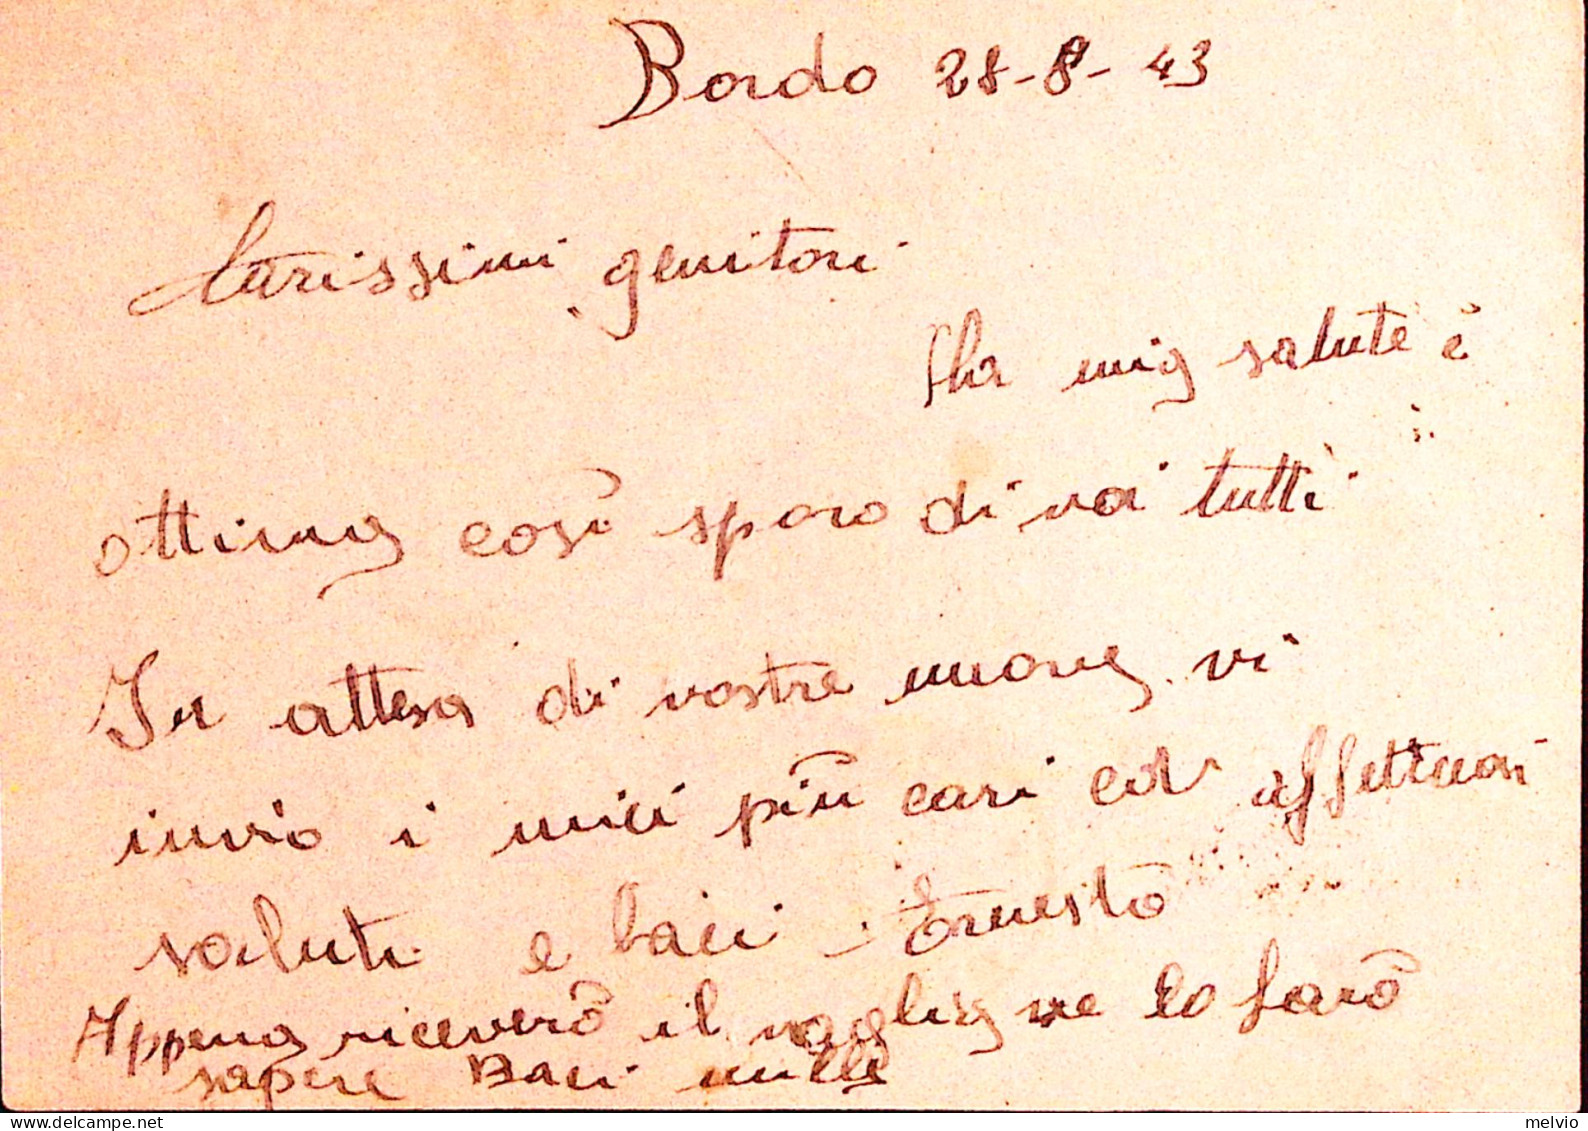 Bordo 28-8-43
Carissimi genitori
La mia salute è
ottima così spero di voi tutti.
In attesa di vostre nuove, vi
invio i miei più cari ed affettuosi
saluti e baci Ernesto
Appena riceverò il vaglia ve lo farò
sapere Baci mille
melvio